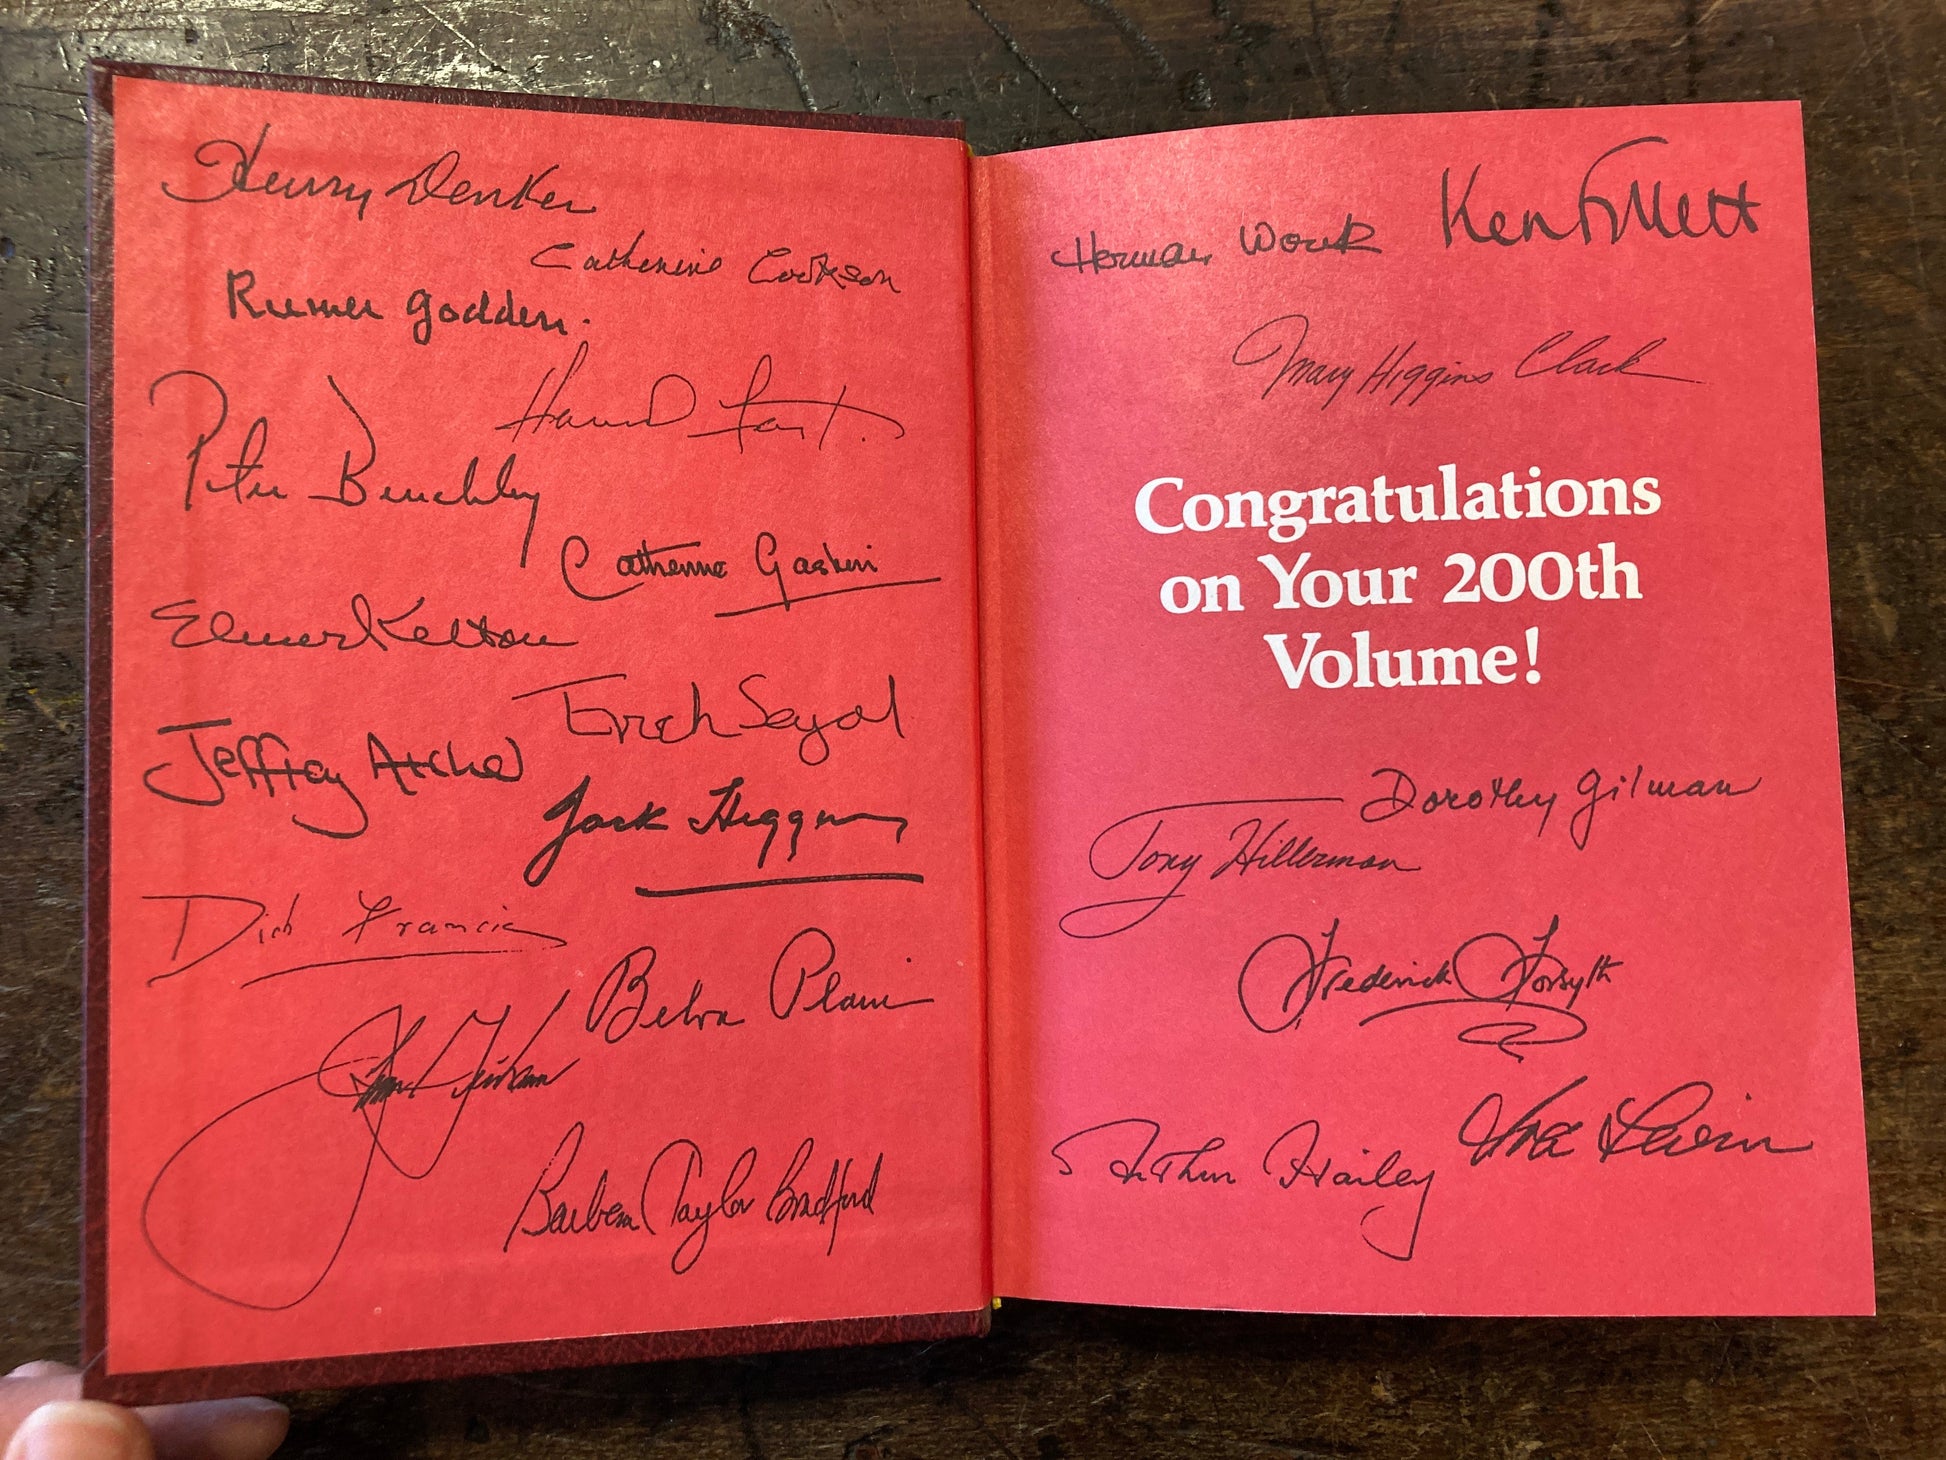 Henry Denker
Catherine Cookson
Rumer Godden.
Howard Fast.
Peter Benchley
Catherine Gaskin
Elmer Kelton
Erich Segal
Jeffrey Archer
Jack Higgins
Dick Francis
Belva Plain
Barbara Taylor Bradford
Herman Wouk
Ken Follett
Mary Higgins Clark
Congratulations
on Your 200th
Volume!
Dorothy Gilman
Tony Hillerman
Frederick Forsyth
Arthur Hailey
Ira Levin